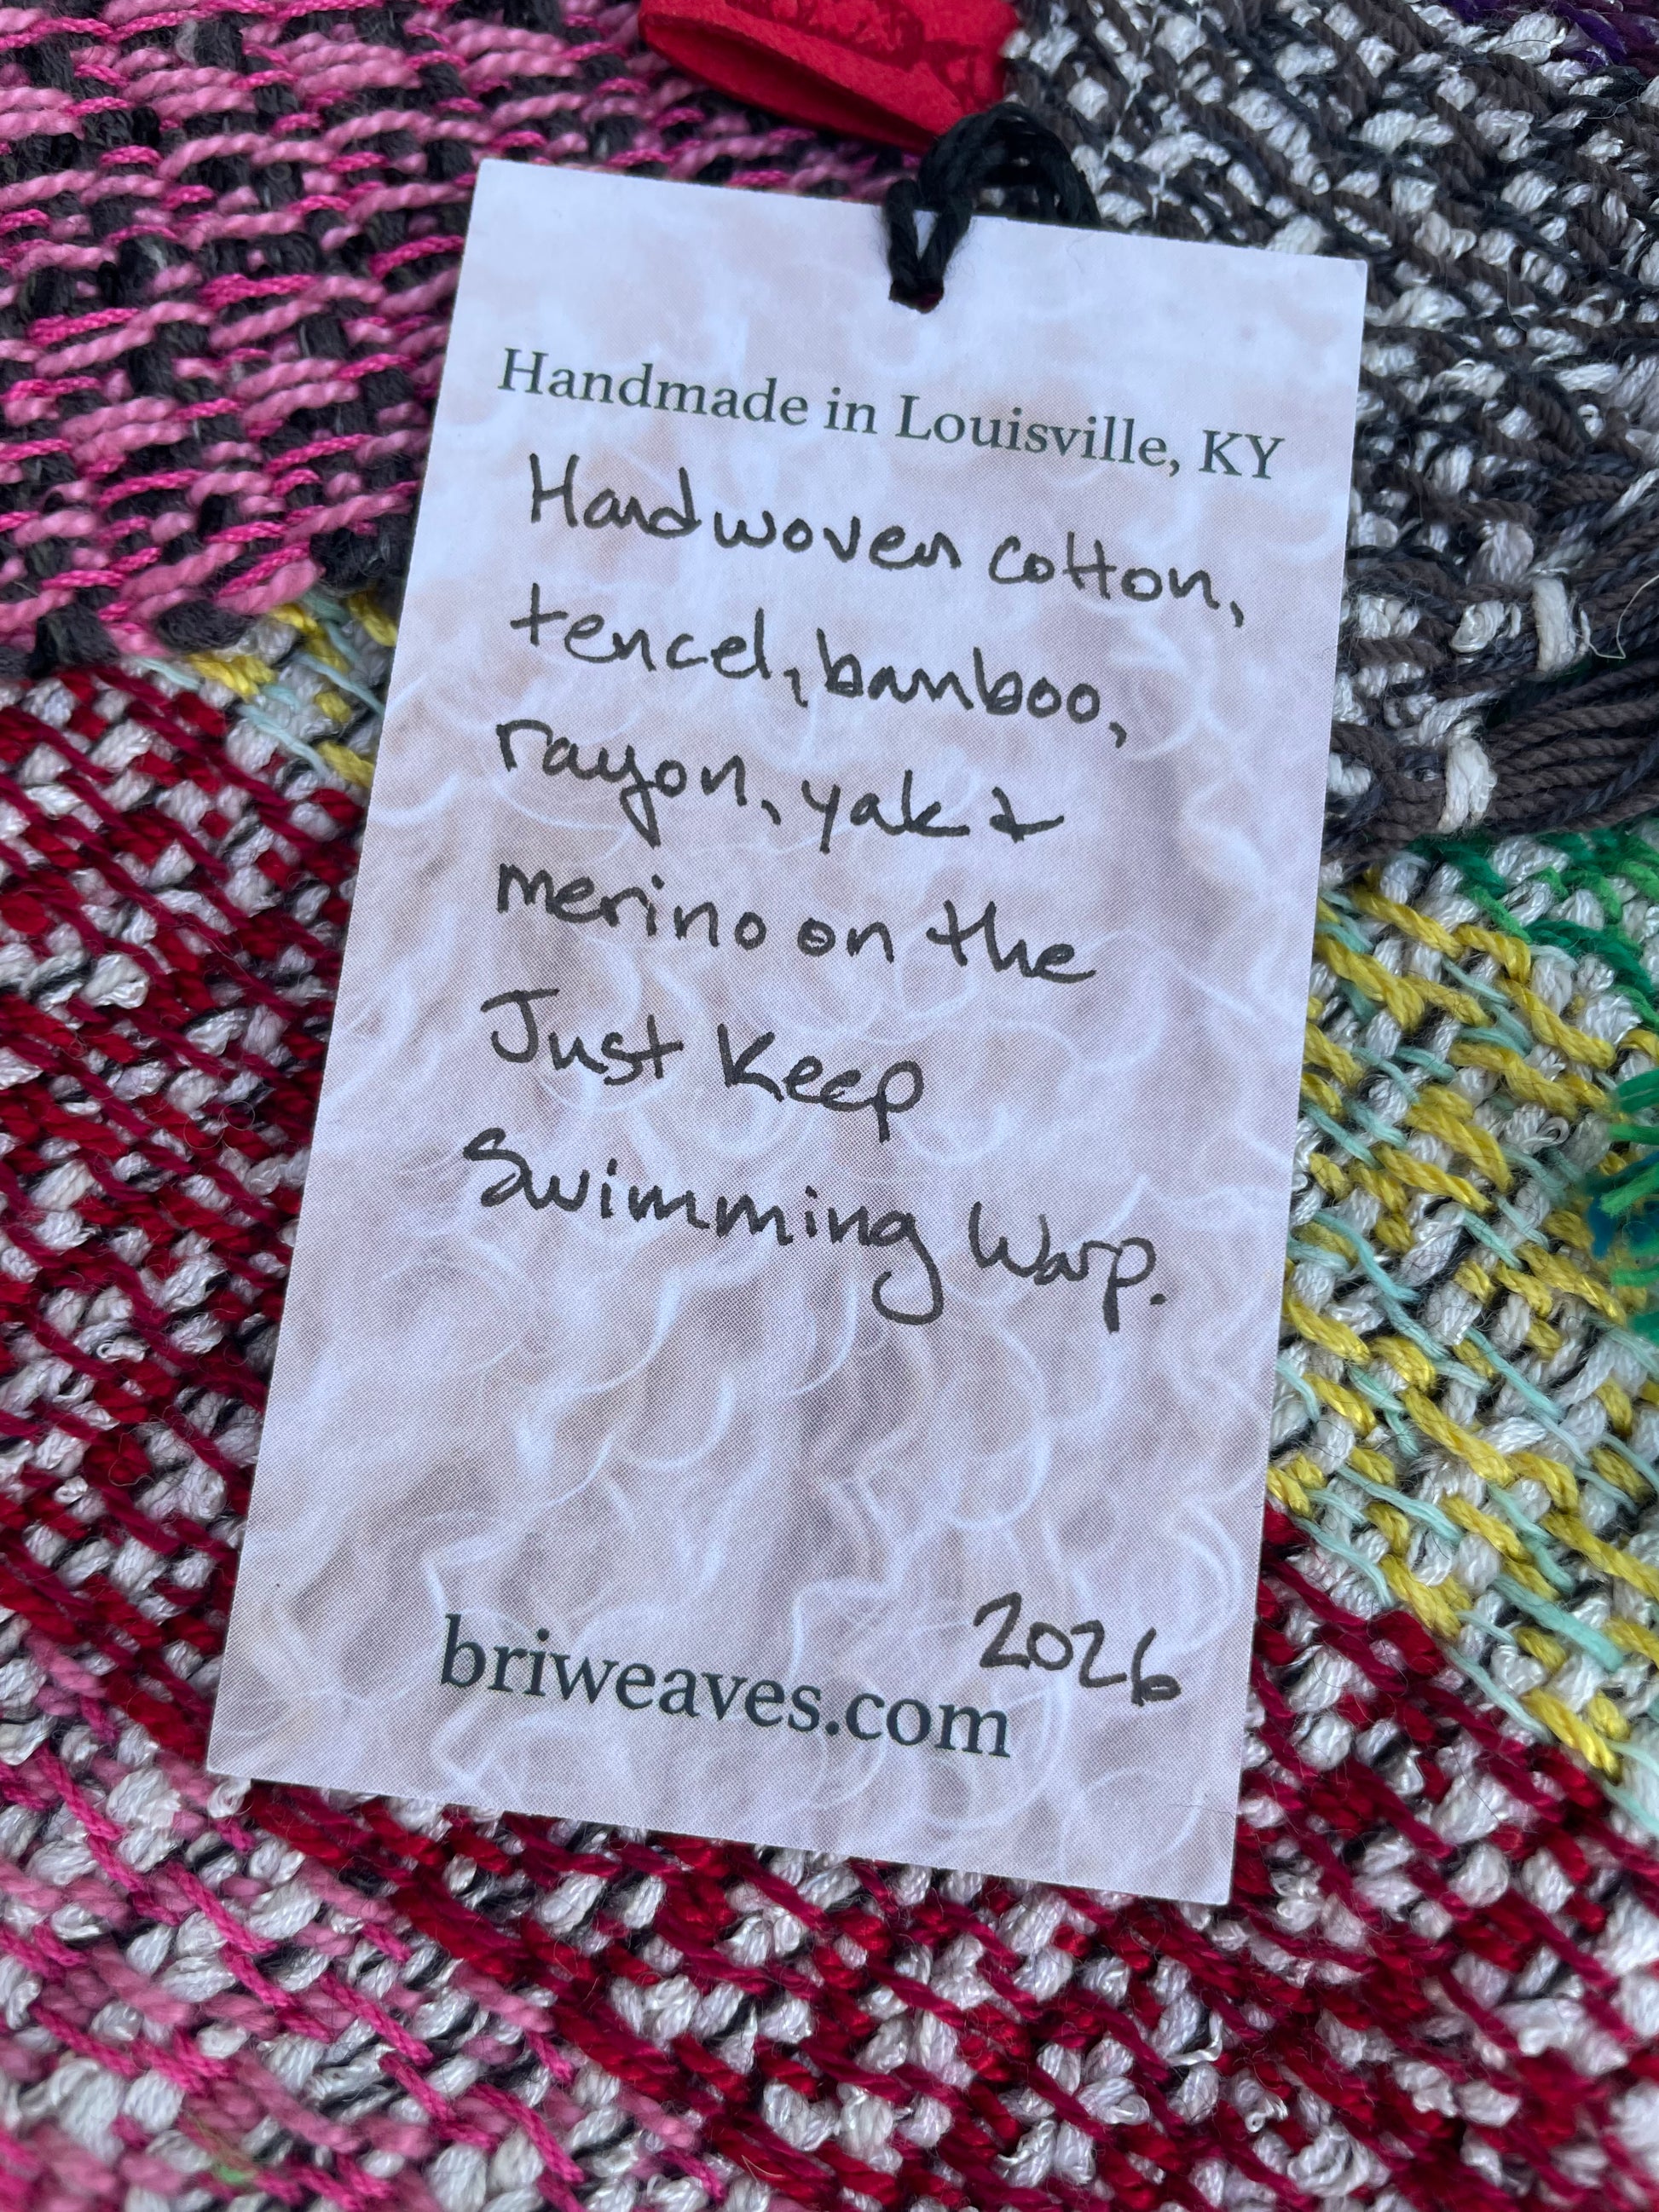 Handmade in Louisville, KY
Handwoven cotton,
tencel, bamboo,
rayon, yak &
merino on the
Just Keep
Swimming Warp.
2026
briweaves.com